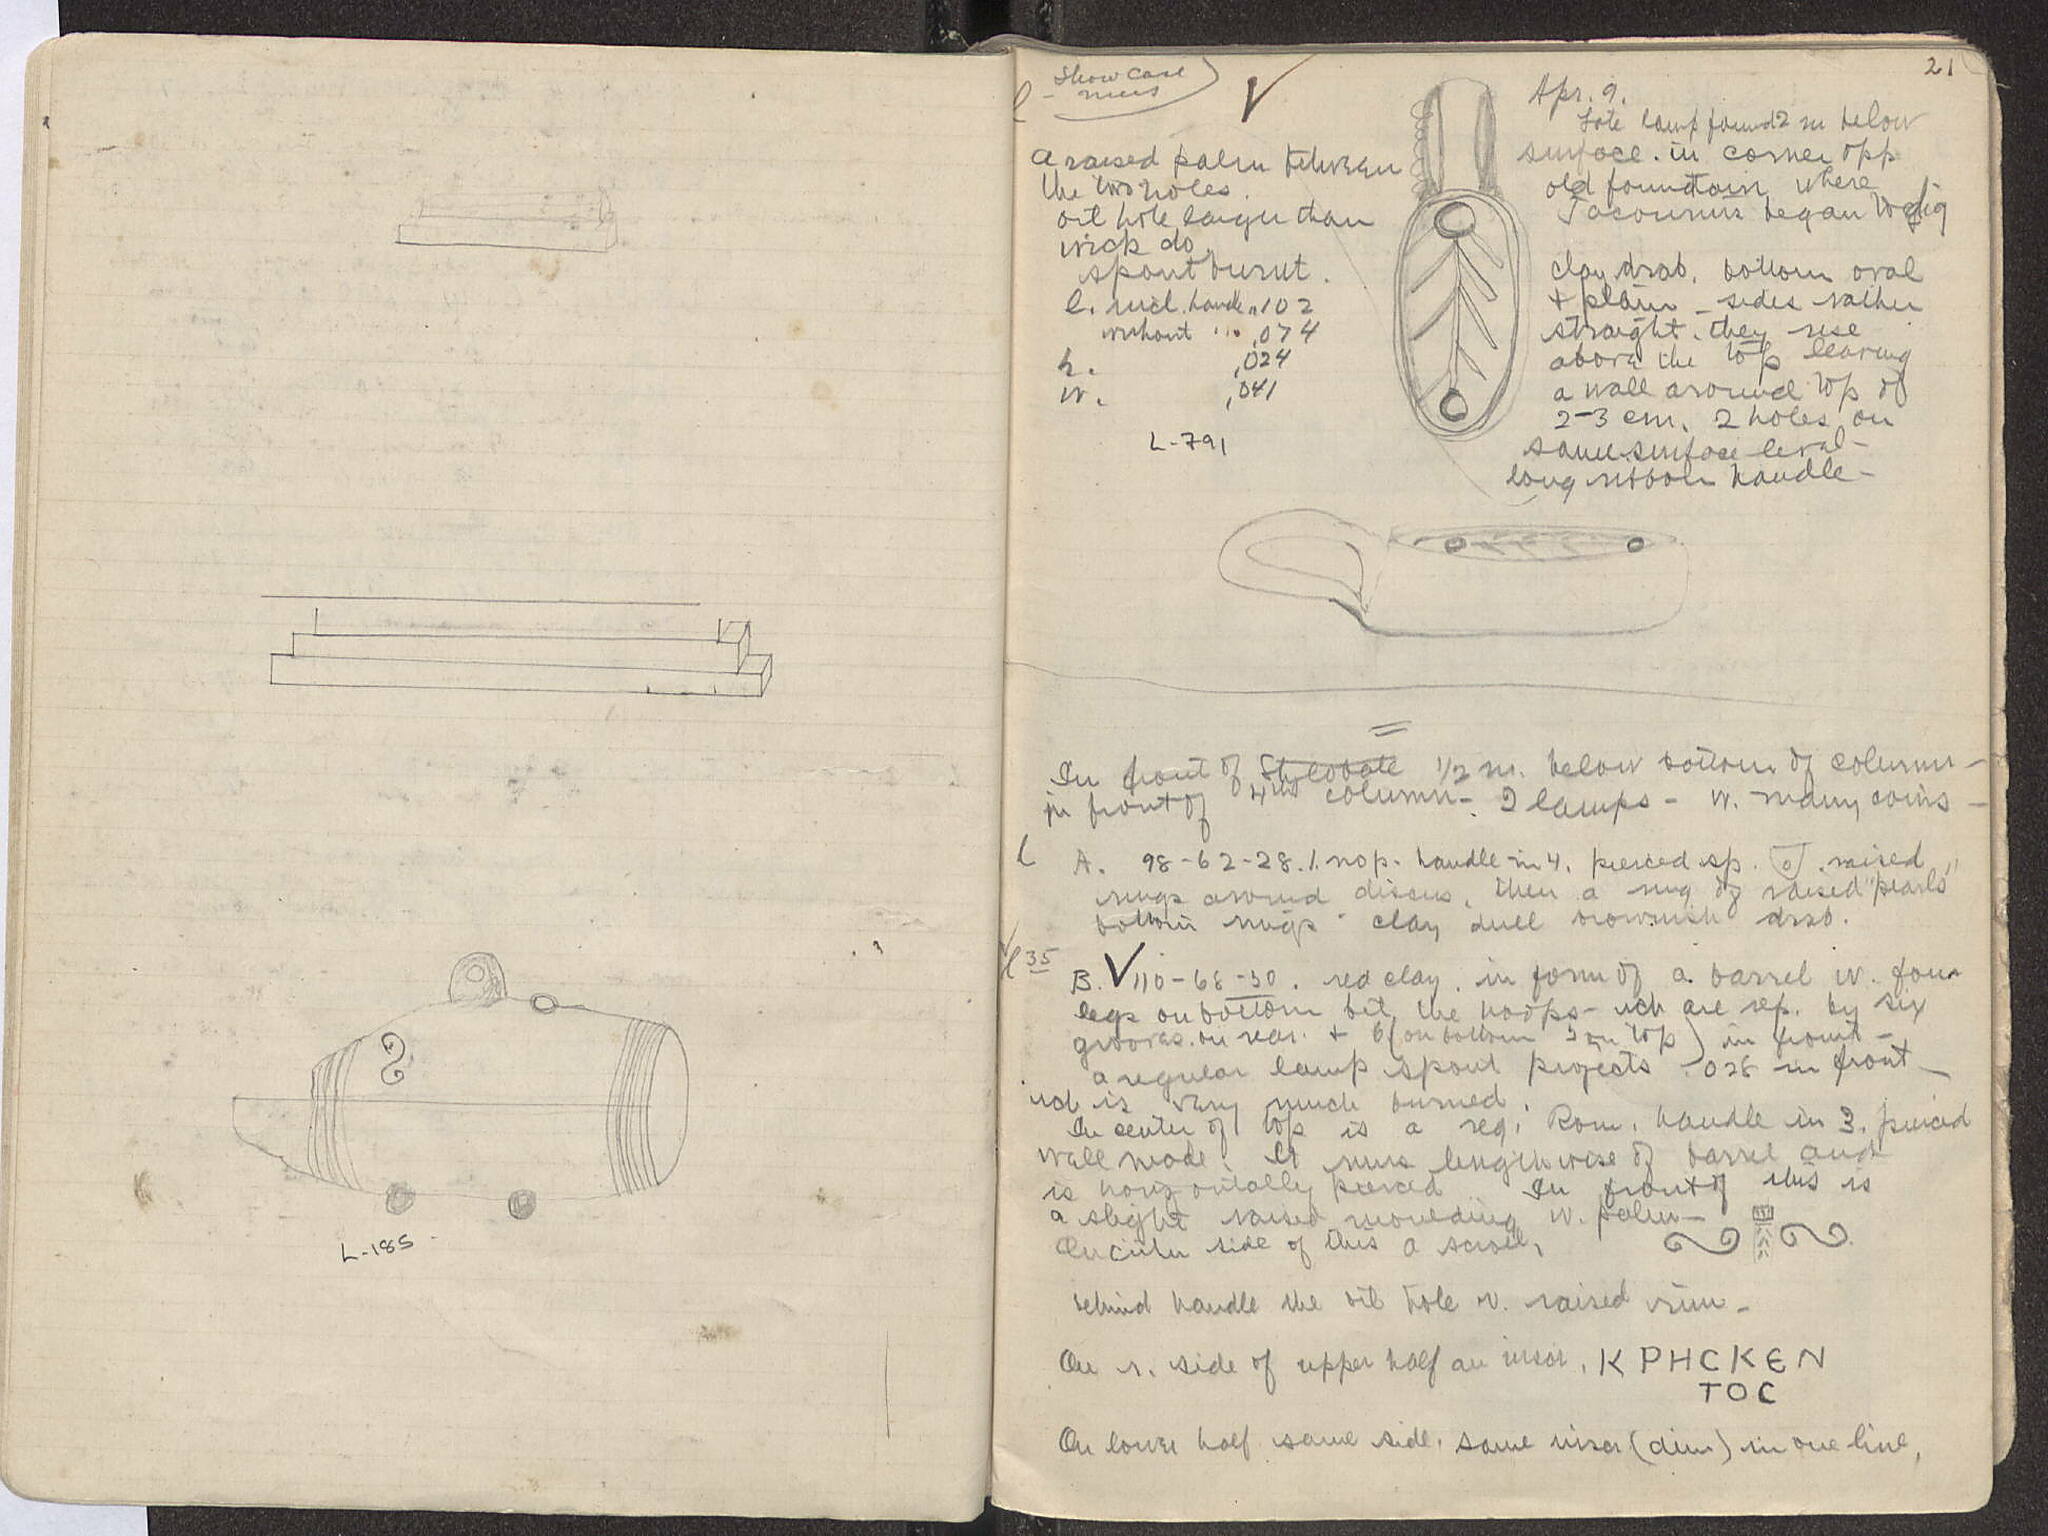 L-185
21
Show case
mus
Apr. 9.
Late lamp found 2 m below
surface. in corner opp
old fountain where
began to dig
a raised palm between
the two holes.
oil hole larger than
wick do
spout burnt.
l. incl. handle .102
without " .074
h. .024
w. .041
L-791
clay drab. bottom oval
& plain - sides rather
straight. they rise
above the top leaving
a wall around top of
2-3 cm. 2 holes on
same surface level -
long ribbon handle -
In front of Stylobate 1/2 m. below bottom of column -
in front of 4th column - 2 lamps - w. many coins -
l A. 98-62-28. handle in 4. pierced sp. raised
rings around discus, then a ring of raised "pearls"
bottom rings - clay dull brownish drab.
l 35
B. 110-68-50. red clay. in form of a barrel w. four
legs on bottom bet. the hoops - wch are rep. by six
grooves on rear. & 6 (on bottom 5 on top) in front -
a regular lamp spout projects .028 in front -
wch is very much burned.
In center of top is a reg. Rom. handle in 3. pierced
well made. It runs lengthwise of barrel and
is horizontally pierced In front of this is
a slight raised moulding w. palm -
On either side of this a scroll.
behind handle the oil hole w. raised rim -
On r. side of upper half an inscr. K PHCKEN
TOC
On lower half same side. same inscr (dim) in one line.